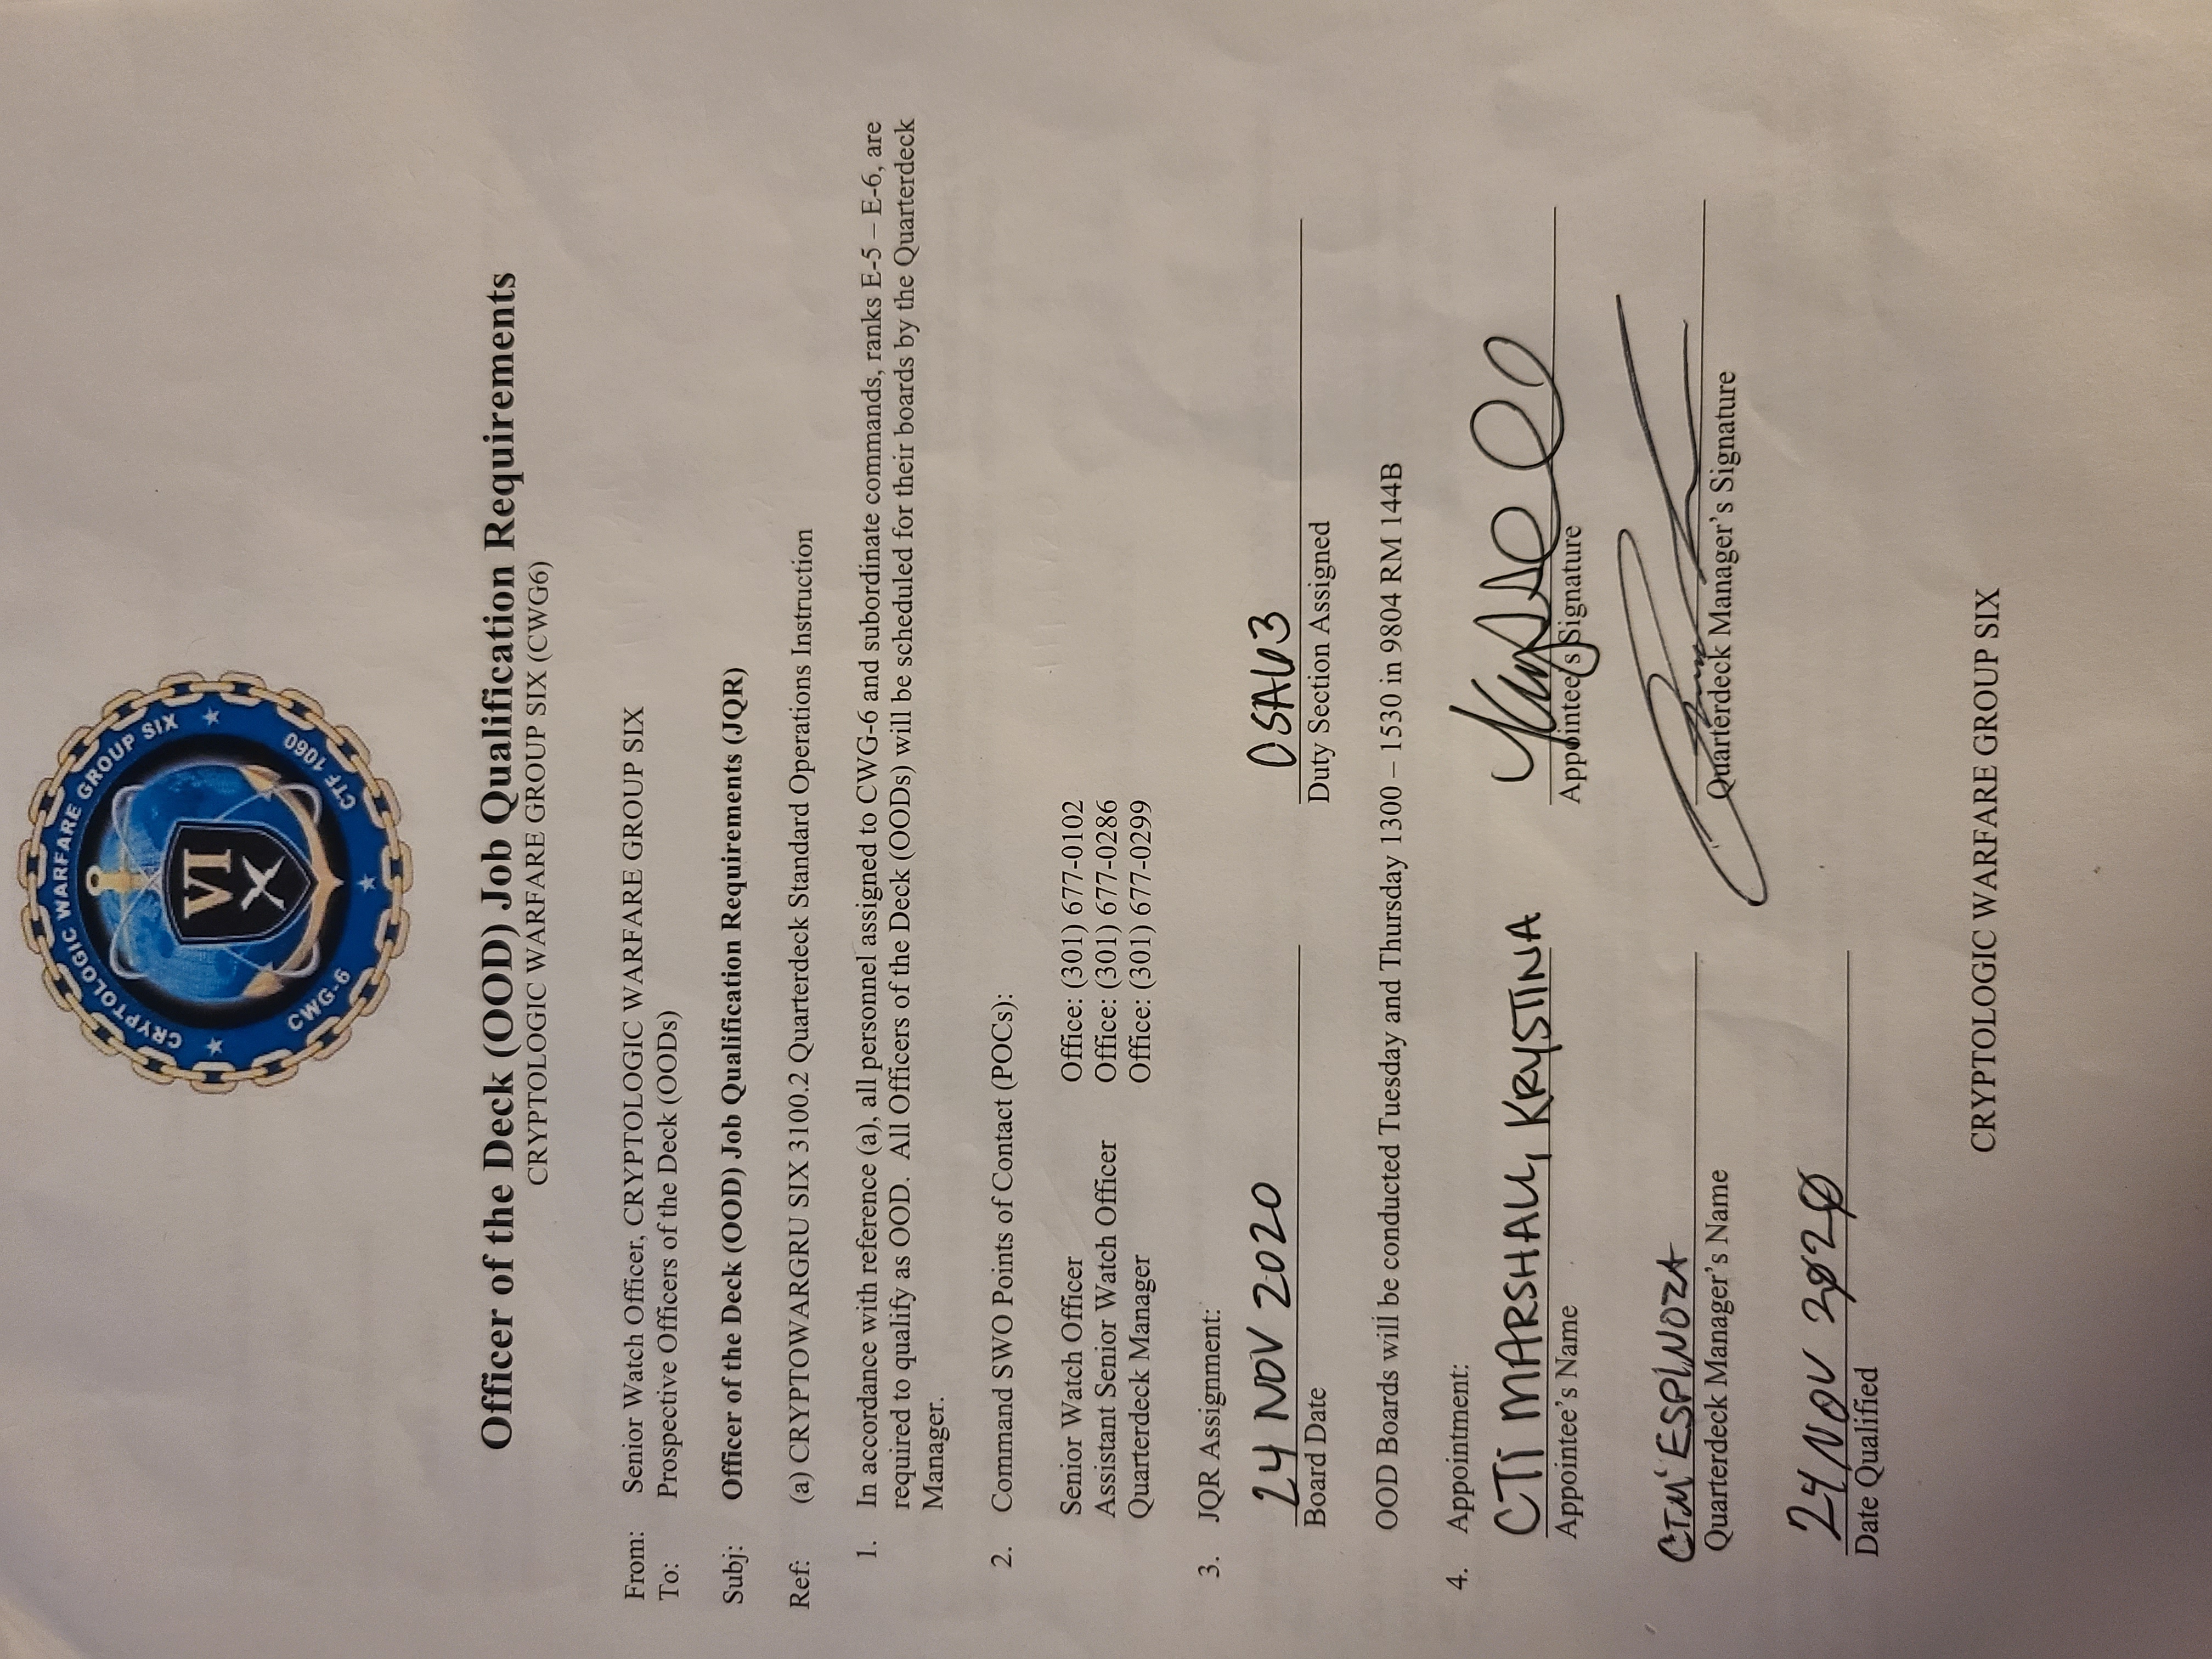 CRYPTOLOGIC WARFARE GROUP SIX
VI
CWG-6
CTF 1060
Officer of the Deck (OOD) Job Qualification Requirements
CRYPTOLOGIC WARFARE GROUP SIX (CWG6)
From: Senior Watch Officer, CRYPTOLOGIC WARFARE GROUP SIX
To: Prospective Officers of the Deck (OODs)
Subj: Officer of the Deck (OOD) Job Qualification Requirements (JQR)
Ref: (a) CRYPTOWARGRU SIX 3100.2 Quarterdeck Standard Operations Instruction
1. In accordance with reference (a), all personnel assigned to CWG-6 and subordinate commands, ranks E-5 – E-6, are
required to qualify as OOD. All Officers of the Deck (OODs) will be scheduled for their boards by the Quarterdeck
Manager.
2. Command SWO Points of Contact (POCs):
Senior Watch Officer Office: (301) 677-0102
Assistant Senior Watch Officer Office: (301) 677-0286
Quarterdeck Manager Office: (301) 677-0299
3. JQR Assignment:
24 NOV 2020
Board Date Duty Section Assigned
OOD Boards will be conducted Tuesday and Thursday 1300 – 1530 in 9804 RM 144B
4. Appointment:
CTI MARSHALL, KRYSTINA
Appointee's Name Appointee's Signature
ESPINOZA
Quarterdeck Manager's Name Quarterdeck Manager's Signature
24 NOV 2020
Date Qualified
CRYPTOLOGIC WARFARE GROUP SIX